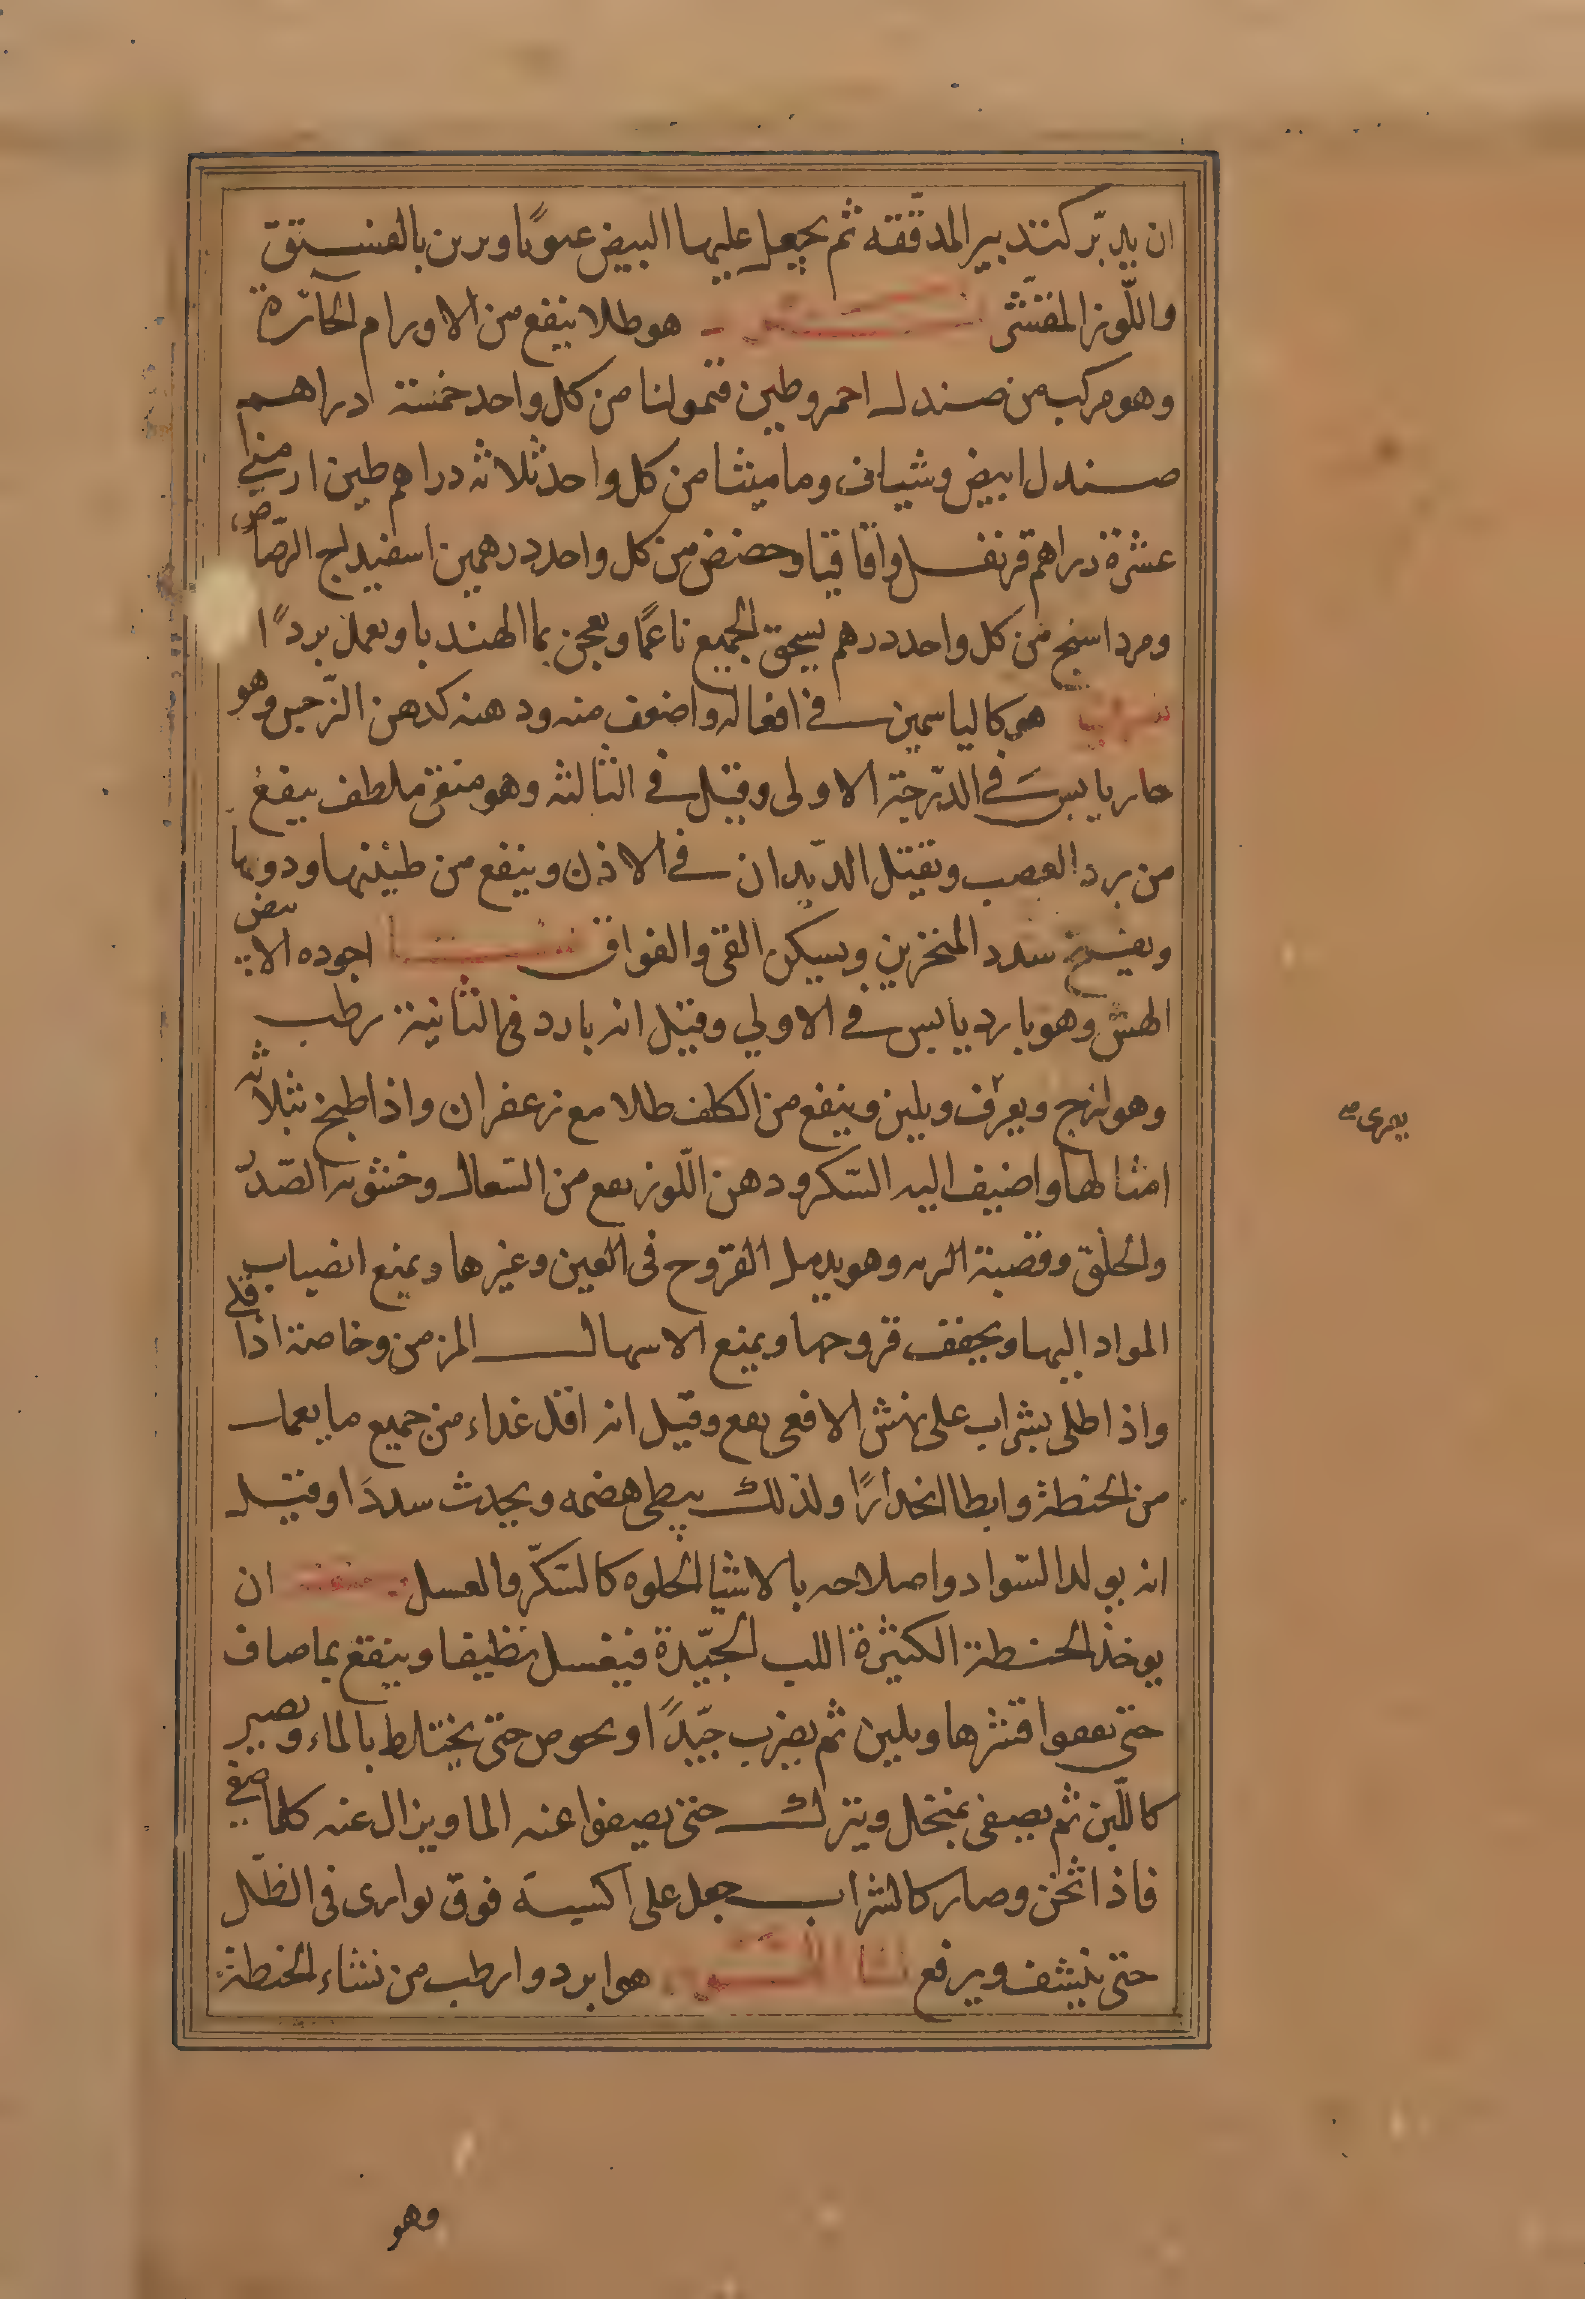 ان يدبّر كتدبير المدقّقه ثم يجعل عليها البيض عيونًا ويزين بالفستق
واللّوز المقشّى هو طلا ينفع من الاورام الحارّة
وهو مركب من صندل احمر وطين قيموليا من كل واحد خمسة دراهم
صندل ابيض وشياف وماميثا من كل واحد ثلاثه دراهم طين ارمني
عشرة دراهم قرنفل واقاقيا وحضض من كل واحد درهمين اسفيداج الرصّاص
ومرداسنج من كل واحد درهم يسحق الجميع ناعمًا ويعجن بما الهندبا ويعمل بردًا
هو كالياسمين في افعاله واضعف منه ودهنه كدهن النّرجس وهو
حار يابس في الدّرجة الاولى وقيل في الثالثه وهو منقي ملطف ينفع
من برد العصب ويقتل الدّيدان في الاذن وينفع من طنينها ودويها
ويفتح سدد المنخزين ويسكن القئ والفواق اجوده الابيض
الهش وهو بارد يابس في الاولي وقيل انه بارد في الثانية رطب
وهو لزج ويعرف ويلين وينفع من الكلف طلا مع زعفران واذا طبخ بثلاثه
امثالها واضيف اليه السّكر ودهن اللّوز نفع من السّعال وخشونه الصّدر
والحلق وقصبة الريه وهو يدمل القروح في العين وغيرها ويمنع انصباب
المواد اليها ويجفف قروحها ويمنع الاسهال المزمن وخاصة اذا قلي
واذا طلى بشراب على نهش الافعى نفع وقيل انه اقل غداء من جميع ما يعمل
من الحنطة وابطا انحدارًا ولذلك يبطي هضمه ويحدث سددًا وقيل
انه يولد السّواد واصلاحه بالاشيا الحلوه كالسّكّر والعسل ان
يوخذ الحنطة الكثيرة اللب الجيّدة فيغسل نظيفا وينقع بما صاف
حتى يعفوا قشرها ويلين ثم يضرب جيّدًا ويحوص حتى يختلط بالماء ويصير
كاللّبن ثم يصفى بمنخل ويترك حتى يصفوا عنه الما ويزال عنه كلما صفي
فاذا ثخن وصار كالشراب جعل على اكسية فوق بوارى في الظّل
حتى ينشف ويرفع نشا هو ابرد وارطب من نشاء الحنطة
وهو